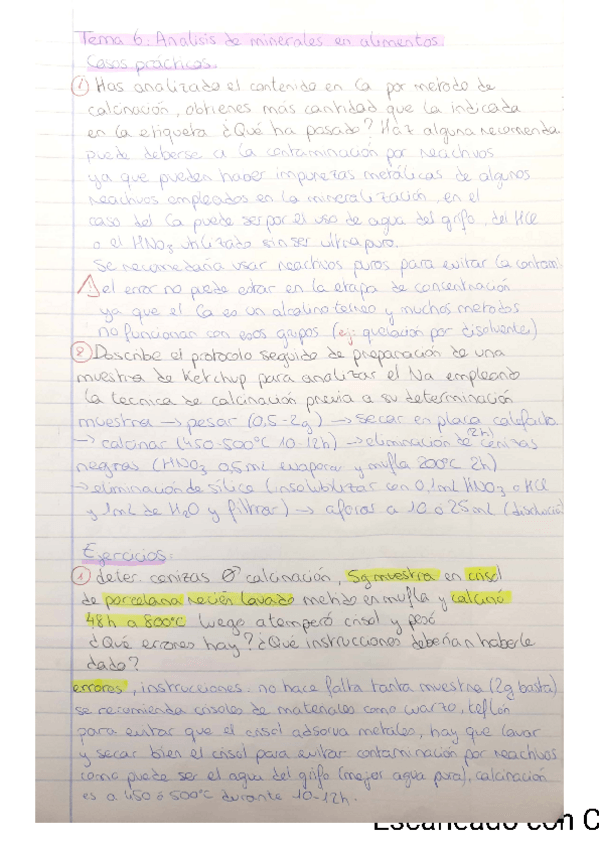 Tema 6. Analisis de minerales en alimentos.
Casos prácticos.
① Has analizado el contenido en Ca por metodo de
calcinación, obtienes más cantidad que la indicada
en la etiqueta ¿Qué ha pasado? Haz alguna recomenda
puede deberse a la contaminación por reactivos
ya que pueden haber impurezas metálicas de algunos
reactivos empleados en la mineralización, en el
caso del Ca puede ser por el uso de agua del grifo, del HCl
o el HNO3 utilizado sin ser ultrapuro.
Se recomendaria usar reactivos puros para evitar la contam
el error no puede estar en la etapa de concentración
ya que el Ca es un alcalinoterreo y muchos metodos
no funcionan con esos grupos (ej: quelación por disolvente)
② Describe el protocolo seguido de preparación de una
muestra de Ketchup para analizar el Na empleando
la tecnica de calcinación previa a su determinación
muestra → pesar (0,5-2g) → secar en placa calefacto
(2h)
→ calcinar (450-500°C 10-12h) → eliminación de cenizas
negras (HNO3 0,5ml evapora y mufla 200°C 2h)
→ eliminación de sílice (insolubilizar con 0,1ml HNO3 o HCl
y 1ml de H2O y filtrar) → aforas a 10 ó 25ml (disolució
Ejercicios:
① deter. cenizas calcinación, 5g muestra en crisol
de porcelana recién lavado metido en mufla y calcinó
48h a 800°C luego atemperó crisol y pesó
¿Qué errores hay? ¿Qué instrucciones deberían haberle
dado?
errores, instrucciones. no hace falta tanta muestra (2g basta)
se recomienda crisoles de materiales como cuarzo, teflón
para evitar que el crisol adsorva metales, hay que lavar
y secar bien el crisol para evitar contaminación por reactivos
como puede ser el agua del grifo (mejor agua pura), calcinación
es a 450 ó 500°C durante 10-12h.
Escaneado con C